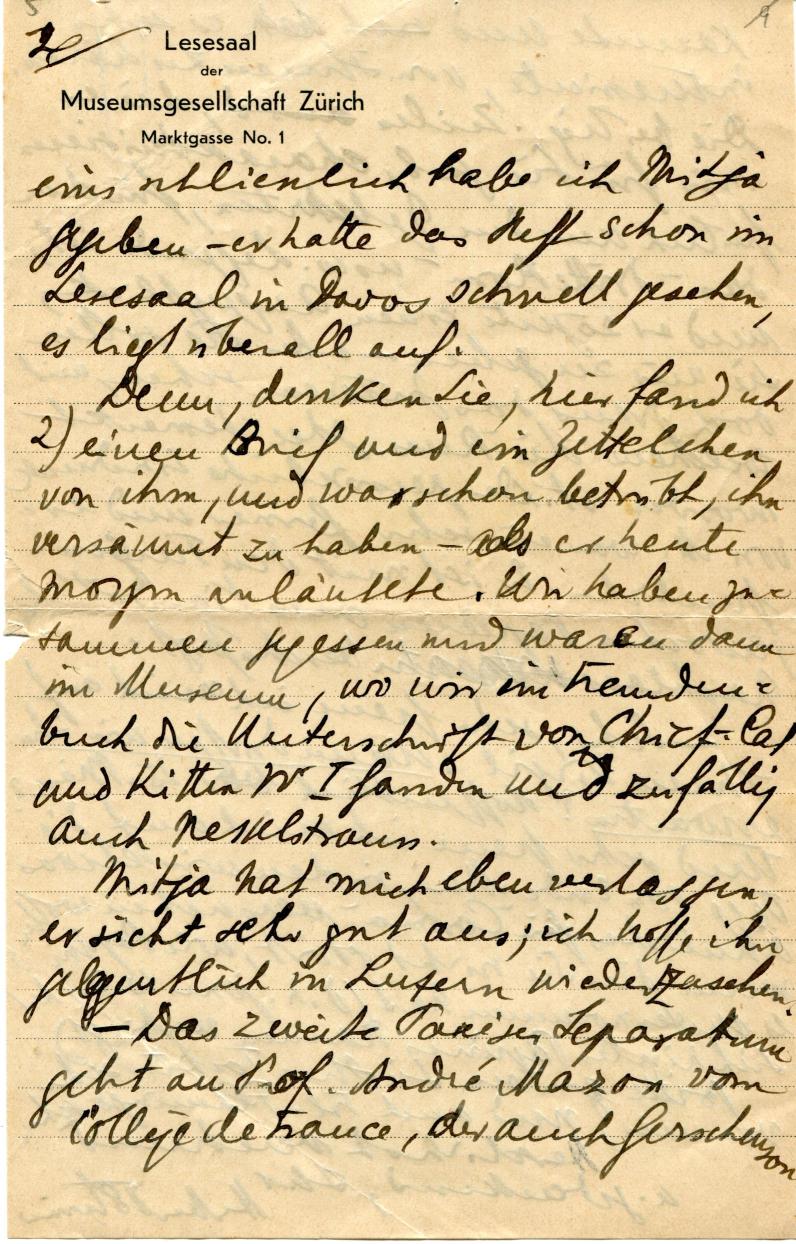 2)
Lesesaal
der
Museumsgesellschaft Zürich
Marktgasse No. 1
eins schliesslich habe ich Mitja
gegeben – er hatte das Heft schon im
Lesesaal in Davos schnell gesehen,
es liegt überall auf.
Denn, denken Sie, hier fand ich
2) einen Brief und ein Zettelchen
von ihm, und war schon betrübt, ihn
versäumt zu haben – als er heute
morgen anläutete. Wir haben zu=
sammen gegessen und waren dann
im Museum, wo wir im Fremden=
buch die Unterschrift von Chief-Cat
und Kitten No I fanden und zufällig
auch Nesselstrauss.
Mitja hat mich eben verlassen,
er sieht sehr gut aus; ich hoffe ihn
gelegentlich in Luzern wiederzusehen.
– Das zweite Pariser Separatum
geht an Prof. André Mazon vom
Collège de France, der auch Gerschenson